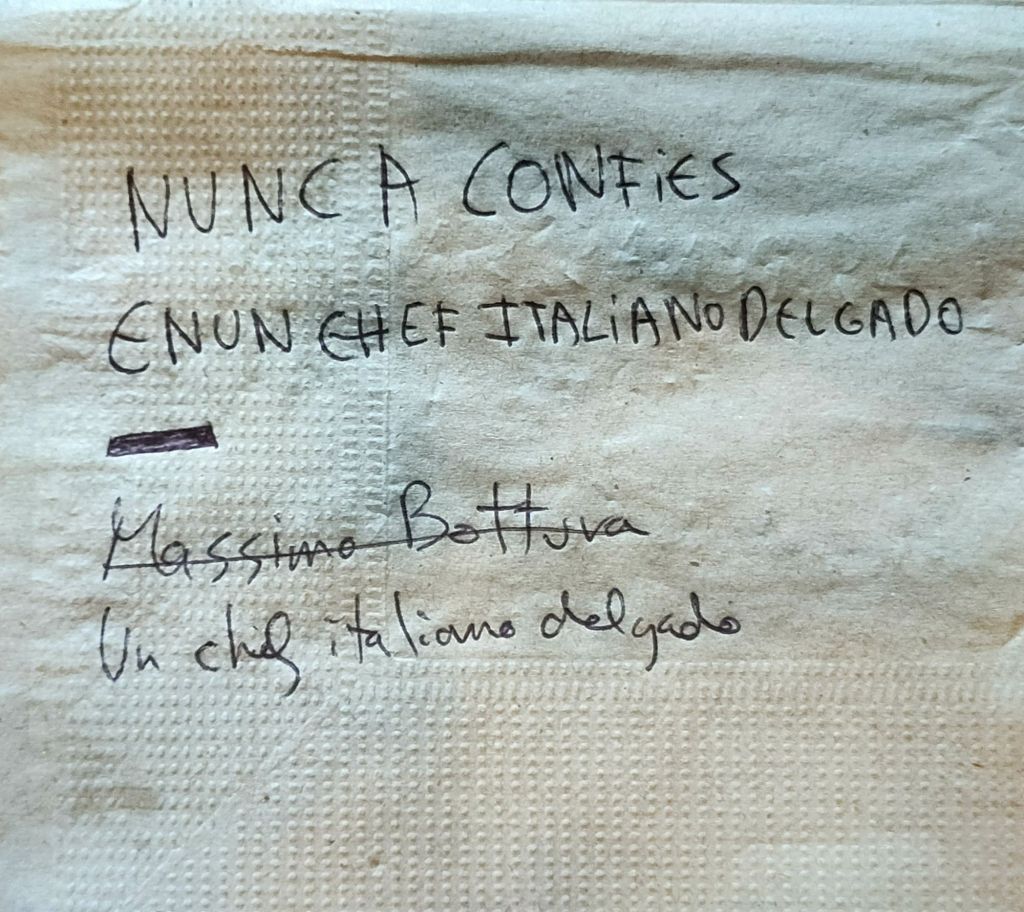 NUNCA CONFiES
EN UN CHEF ITALiANO DELGADO
Massimo Bottura
Un chef italiano delgado